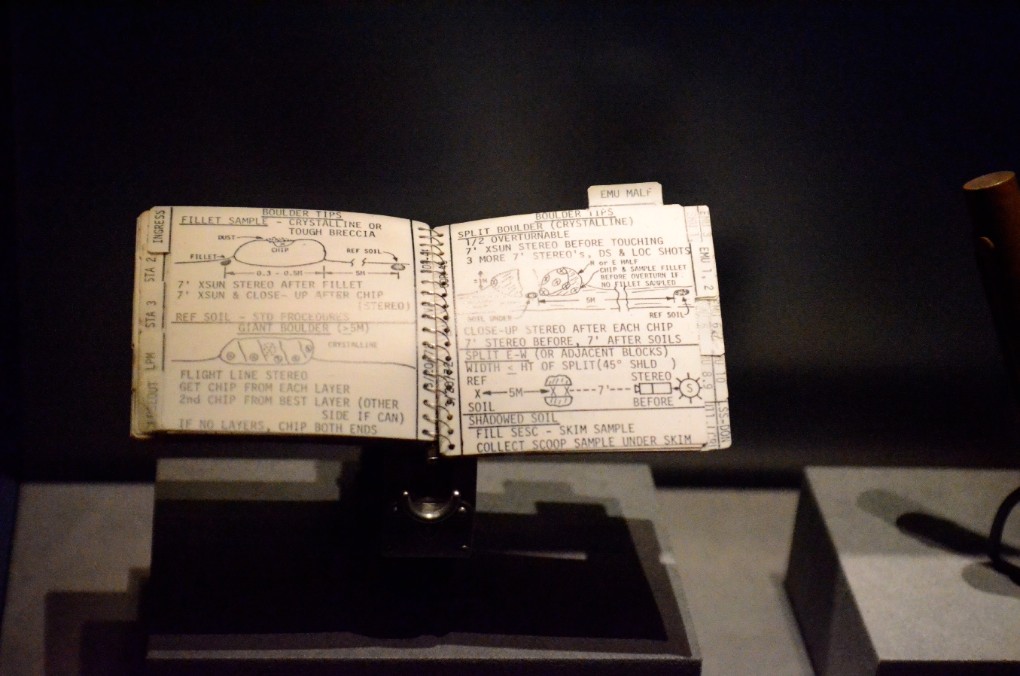 BOULDER TIPS
FILLET SAMPLE - CRYSTALLINE OR
TOUGH BRECCIA
DUST
CHIP
FILLET
REF SOIL
0.3 - 0.5M
5M
7' XSUN STEREO AFTER FILLET
7' XSUN & CLOSE-UP AFTER CHIP
(STEREO)
REF SOIL - STD PROCEDURES
GIANT BOULDER (>5M)
CRYSTALLINE
FLIGHT LINE STEREO
GET CHIP FROM EACH LAYER
2nd CHIP FROM BEST LAYER (OTHER
SIDE IF CAN)
IF NO LAYERS, CHIP BOTH ENDS
INGRESS
STA 2
STA 3
LPM
EMU MALF
BOULDER TIPS
SPLIT BOULDER (CRYSTALLINE)
1/2 OVERTURNABLE
7' XSUN STEREO BEFORE TOUCHING
3 MORE 7' STEREO's, DS & LOC SHOTS
W or E HALF
CHIP & SAMPLE FILLET
BEFORE OVERTURN IF
NO FILLET SAMPLED
5M
SOIL UNDER
REF SOIL
CLOSE-UP STEREO AFTER EACH CHIP
7' STEREO BEFORE, 7' AFTER SOILS
SPLIT E-W (OR ADJACENT BLOCKS)
WIDTH < HT OF SPLIT(45° SHLD )
REF
STEREO
X 5M X X 7' S
SOIL
BEFORE
SHADOWED SOIL
FILL SESC - SKIM SAMPLE
COLLECT SCOOP SAMPLE UNDER SKIM
EMU 1, 2